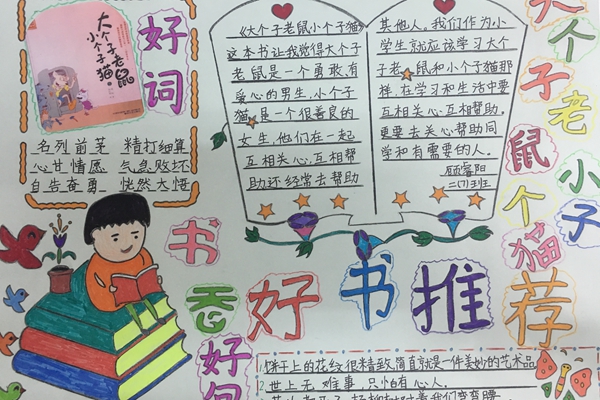 大个子老鼠
小个子猫
好词
名列前茅 精打细算
心甘情愿 气急败坏
自告奋勇 恍然大悟
《大个子老鼠小个子猫》
这本书让我觉得大个子
老鼠是一个勇敢,有
爱心的男生,小个子
猫是一个很善良的
女生,他们在一起
互相关心,互相帮
助,还经常去帮助
其他人。我们作为小
学生就应该学习大个
子老鼠和小个子猫那
样,在学习和生活中要
互相关心,互相帮助。
更要去关心帮助同
学和有需要的人。
二(1)班
大个子老鼠
小个子猫
书香
好书推荐
好句
1.饼干上的花纹很精致,简直就是一件美妙的艺术品
2.世上无难事,只怕有心人。